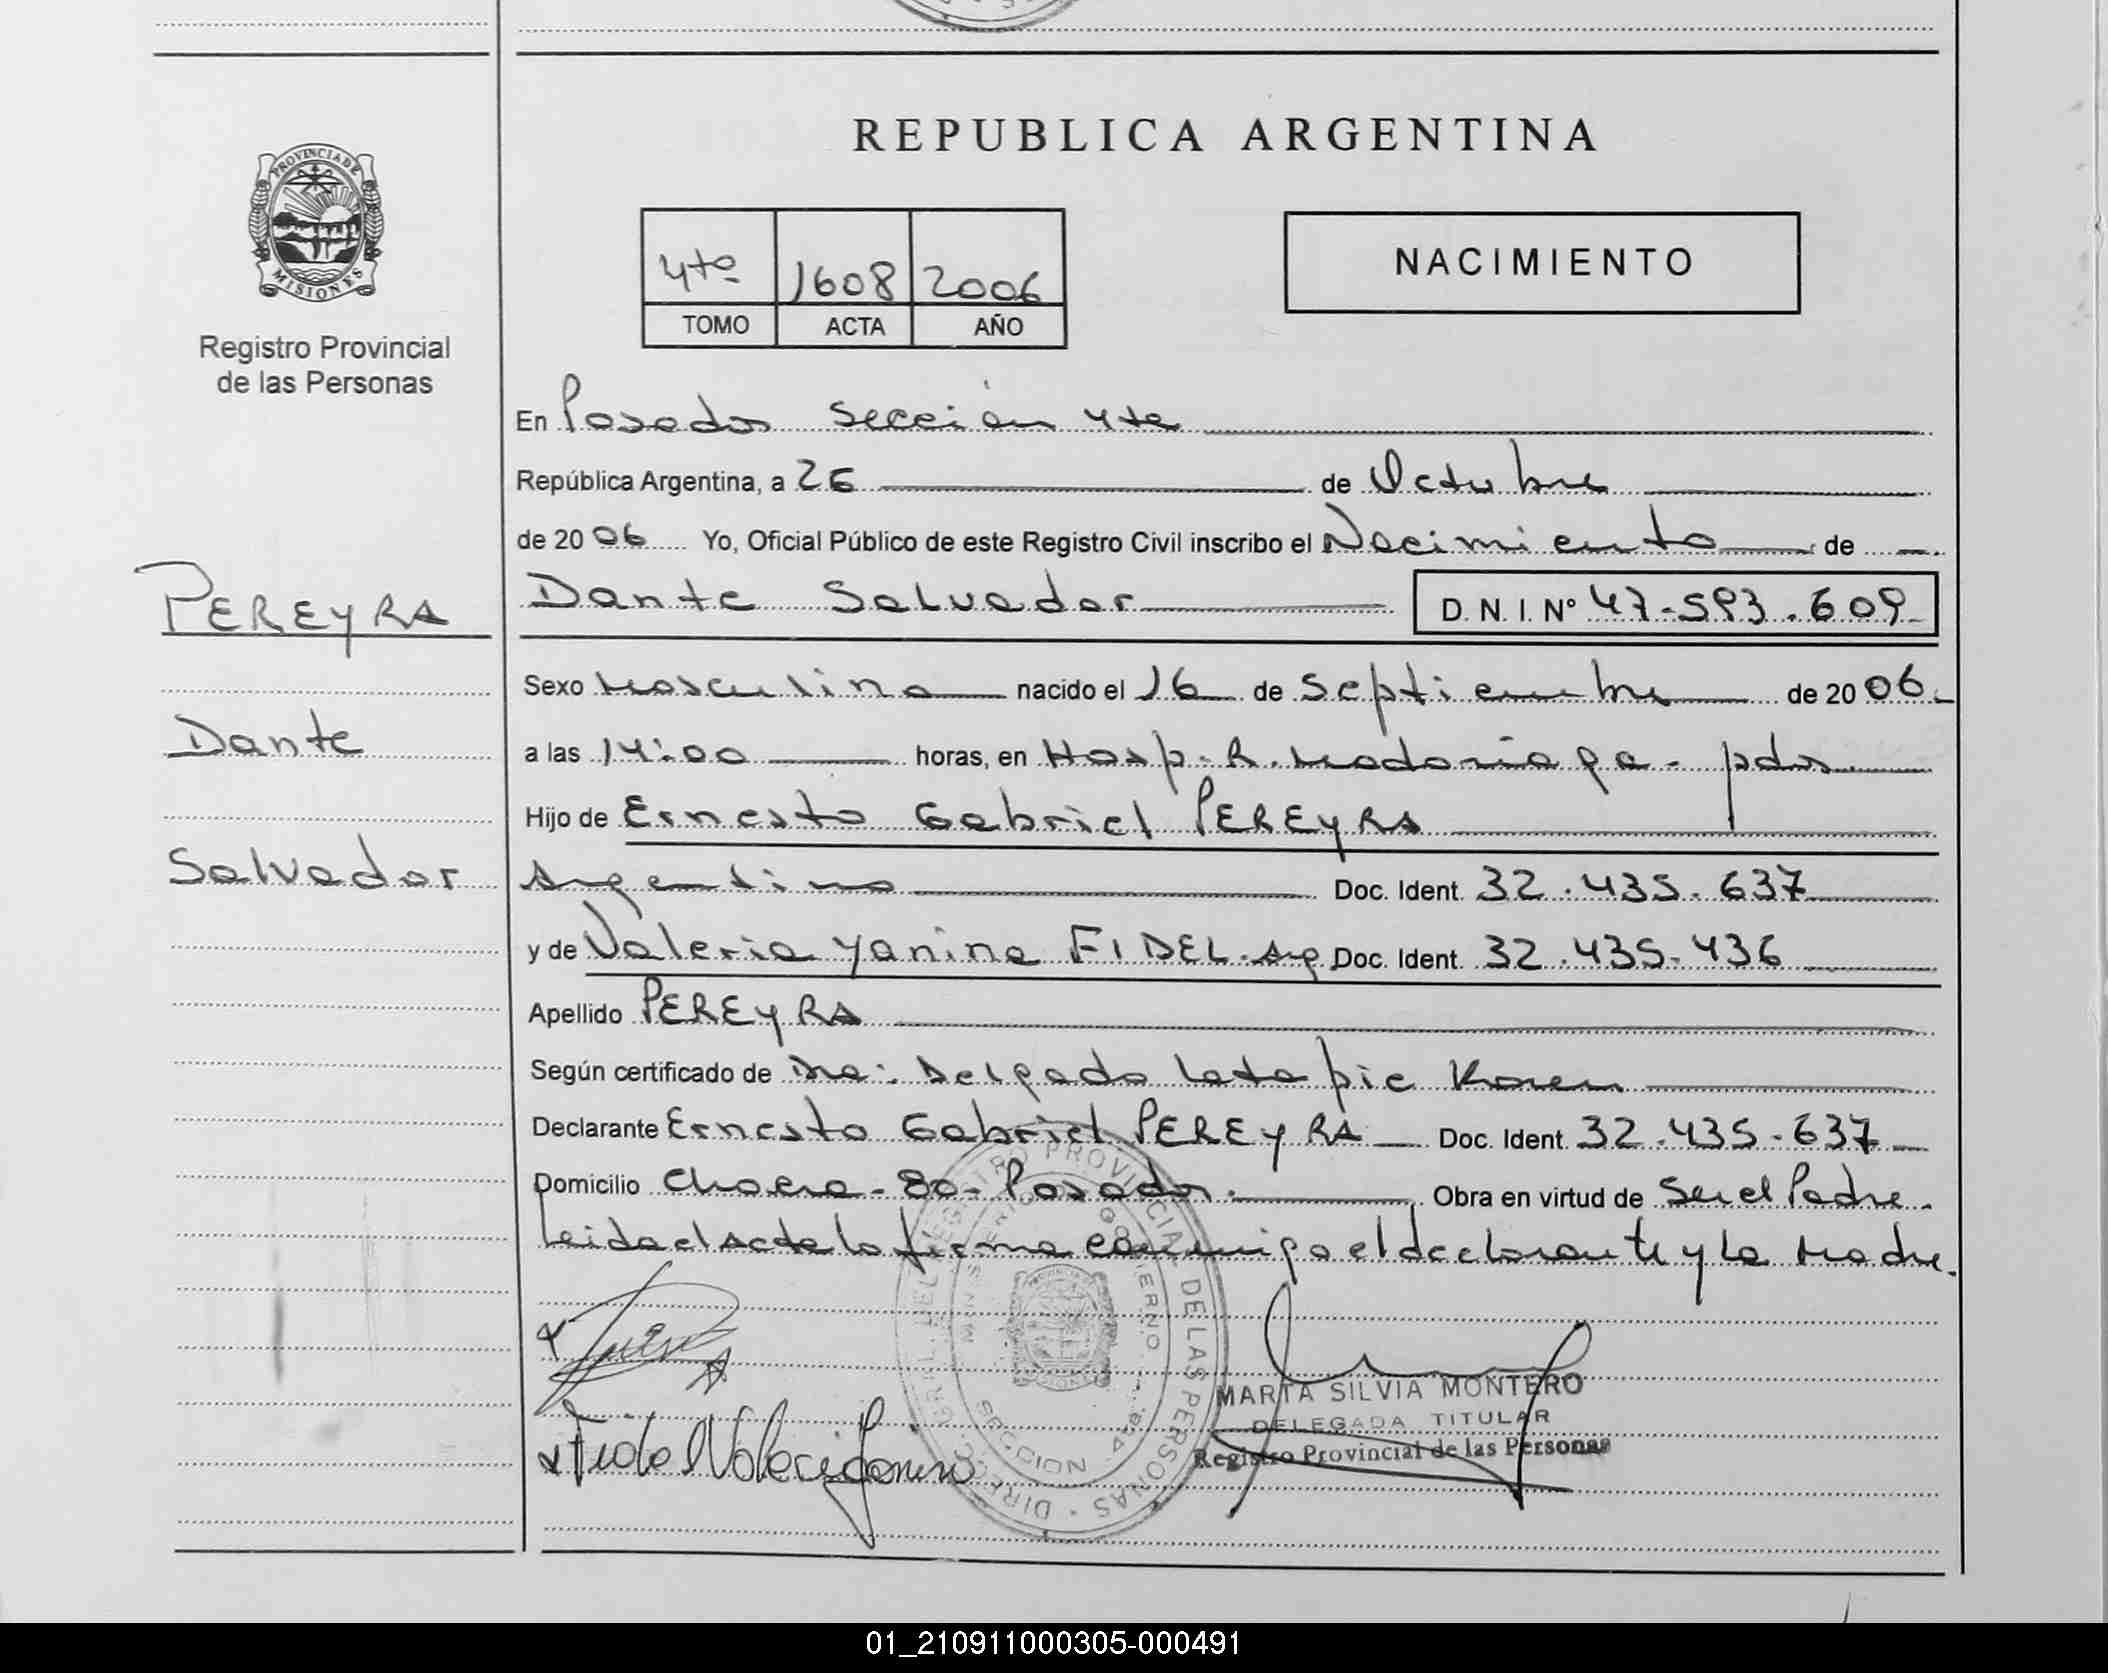 REPUBLICA ARGENTINA
PROVINCIA DE
MISIONES
Registro Provincial
de las Personas
4to 1608 2006
TOMO ACTA AÑO
NACIMIENTO
En Posadas sección 4ta
República Argentina, a 26 de Octubre
de 2006 Yo, Oficial Público de este Registro Civil inscribo el Nacimiento de
PEREYRA
Dante
Salvador
Dante Salvador D. N. I. Nº 47-593.609
Sexo Masculino nacido el 16 de Septiembre de 2006.
a las 14:00 horas, en Hosp. R. Madariaga - pdas
Hijo de Ernesto Gabriel PEREYRA
Argentino Doc. Ident. 32.435.637
y de Valeria Yanina FIDEL. Arg Doc. Ident. 32.435.436
Apellido PEREYRA
Según certificado de Dra: Delgado Latapie Karen
Declarante Ernesto Gabriel PEREYRA Doc. Ident. 32.435.637
Domicilio Chacra - 80 - Posadas. Obra en virtud de Ser el Padre.
Leida el Acta la firma conmigo el declarante y la Madre.
DIREC. GRAL. DEL REGISTRO PROVINCIAL DE LAS PERSONAS
MINISTERIO GOBIERNO
SECCION 4ta.
Fidel Valeria Yanina
MARTA SILVIA MONTERO
DELEGADA TITULAR
Registro Provincial de las Personas
01_210911000305-000491